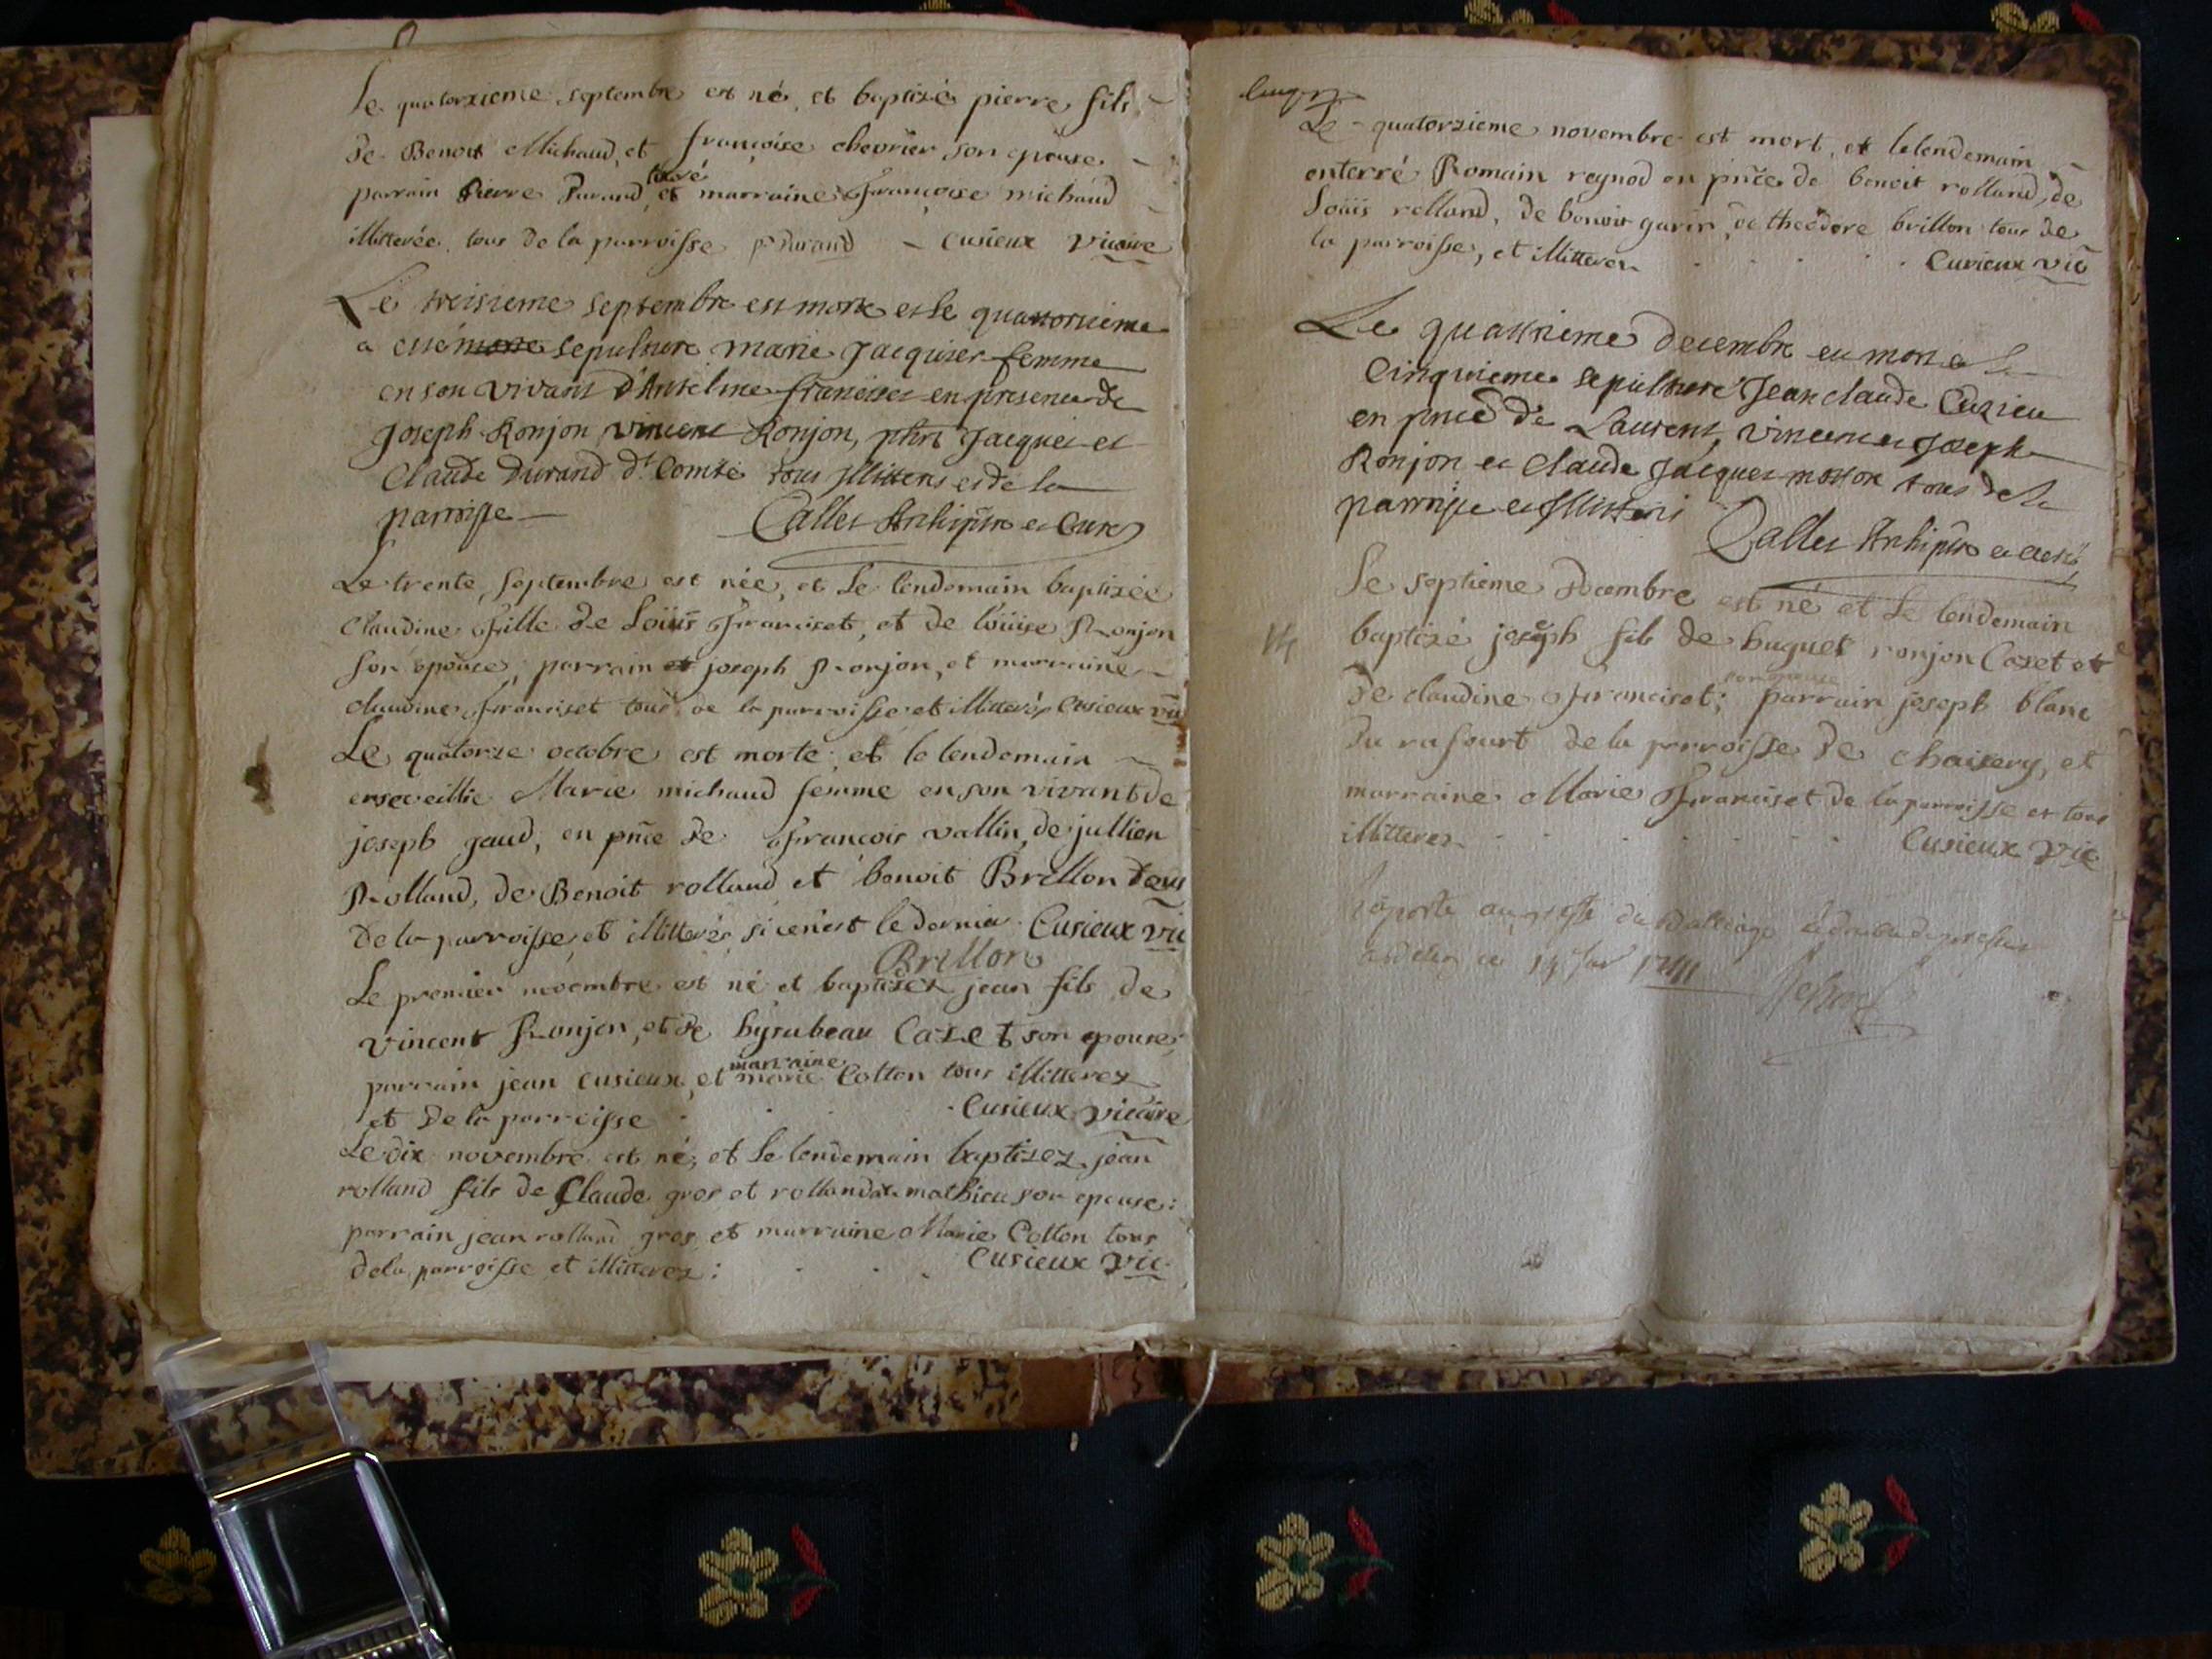 Le quatorzieme septembre est né et baptisé pierre fils
de Benoit Michaud et françoise chevrier son epouse
parrain Pierre Durand lettré et marraine françoise michaud
illitterée tous de la parroisse p Durand Cusieux vicaire
Le treisieme septembre est morte et le quatorsieme
a esté morte sepulture marie Jacquier femme
en son vivant d'Antelme franciset en presence de
Joseph Ronjon, vincent Ronjon, phri Jacques et
Claude Durand dt Comte tous illitters et de la
parroisse Callet Archiptre et Curé
Le trente septembre est née, et le lendemain baptizée
Claudine fille de Loüis franciset, et de loüise Ronjon
son epouse, parrain et joseph Ronjon, et marraine
claudine franciset tous de la parroisse et illitterés Cusieux vic
Le quatorze octobre est morte et le lendemain
enseveillie Marie michaud femme en son vivant de
joseph gaud, en pnce de françois vallin, de jullien
Rolland, de Benoit rolland et benoit Brillon tous
de la parroisse, et illitterés si ce n'est le dernier Cusieux vic
Brillon
Le premier novembre est né et baptisez jean fils de
vincent Ronjon, et de hysabeau Cazet son epouse
parrain jean cusieux, et marraine marie Cotton tous illitterez
et de la parroisse Cusieux vicaire
Le dix novembre est né, et le lendemain baptisez jean
rolland fils de Claude gros et rollande mathieu son epouse:
parrain jean rolland gros et marraine Marie Cotton tous
de la parroisse et illitterez: Cusieux vic
Le quatorzieme novembre est mort, et le lendemain
enterré Romain reynod en pnce de benoit rolland, de
Loüis rolland, de benoit garin, de theodore brillon tous de
la parroisse, et illitterez Cusieux vic
Le quattrieme decembre est mort et le
Cinquieme sepulturé Jean claude Cuzieu
en pnce de Laurent, vincent et Joseph
Ronjon et Claude Jacques motton tous de la
parroisse et illitteris Callet Archiptre et curé
Le septieme decembre est né et le lendemain
baptizé joseph fils de huguet ronjon Cazet et
de claudine franciset; son epouse parrain joseph blanc
du rasourt de la parroisse de chaizery, et
marraine Marie franciset de la parroisse et tous
illitterez Cusieux vic